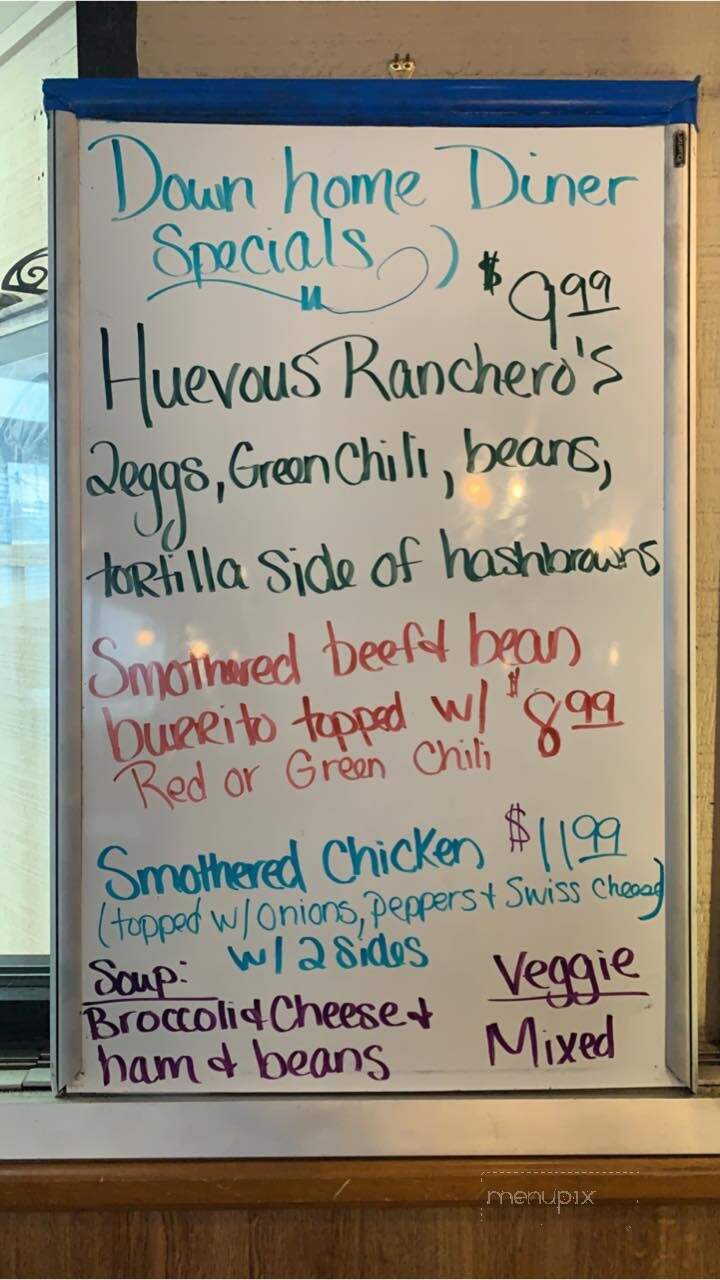 Down home Diner
Specials
$9.99
Huevous Ranchero's
2eggs, Green Chili, beans,
tortilla Side of hashbrowns
Smothered beef & bean
burrito topped w/ $8.99
Red or Green Chili
Smothered Chicken $11.99
(topped w/ Onions, peppers & Swiss Cheese)
w/ 2 Sides
Soup:
Broccoli & Cheese &
ham & beans
Veggie
Mixed
menupix